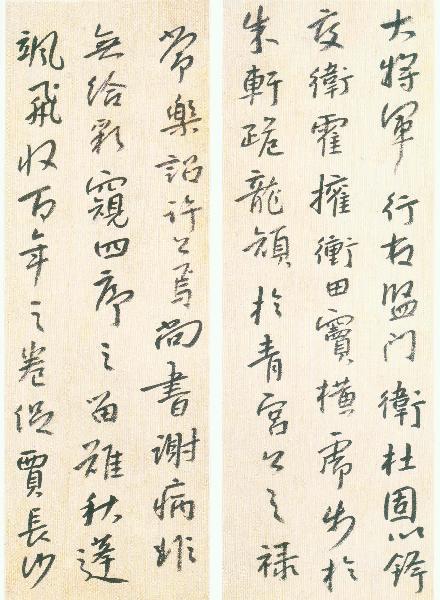 大將軍行右監門衛杜固以鋒
交衛霍擁衝田竇橫虎步於
朱軒跪龍顏於青宮公之祿
常樂詔許公焉尚書謝病非
無給彩窺四序之留難秋蓬
颯飛收百年之卷促賈長沙